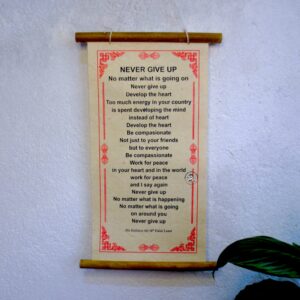 NEVER GIVE UP
No matter what is going on
Never give up
Develop the heart
Too much energy in your country
is spent developing the mind
instead of heart
Develop the heart
Be compasionate
Not just to your friends
but to everyone
Be compassionate
Work for peace
in your heart and in the world
work for peace
and I say again
Never give up
No matter what is happening
No matter what is going
on around you
Never give up
His Holiness the 14th Dalai Lama